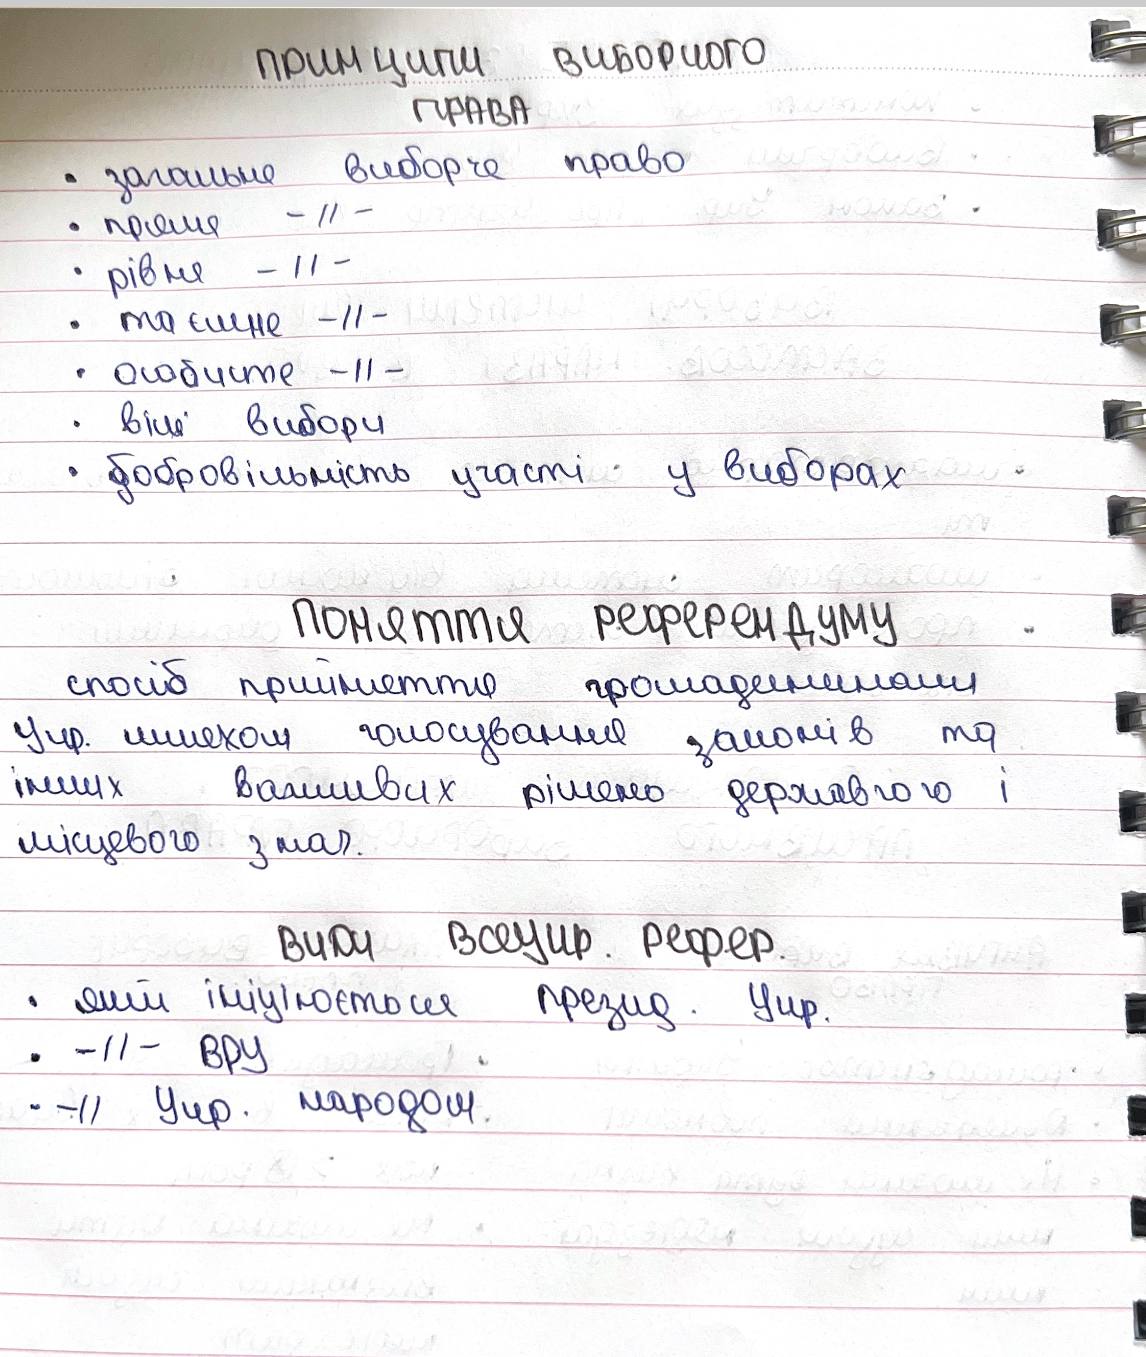 ПРИНЦИПИ ВИБОРЧОГО
ПРАВА
• загальне виборче право
• пряме -//-
• рівне -//-
• таємне -//-
• особисте -//-
• вілі вибори
• добровільність участі у виборах
ПОНЯТТЯ РЕФЕРЕНДУМУ
спосіб прийняття громадянинами
Укр. шляхом голосування законів та
інших важливих рішень державного і
місцевого знач.
ВИДИ ВСЕУКР. РЕФЕР.
• який ініціюється презид. Укр.
• -//- ВРУ
• -// Укр. народом.